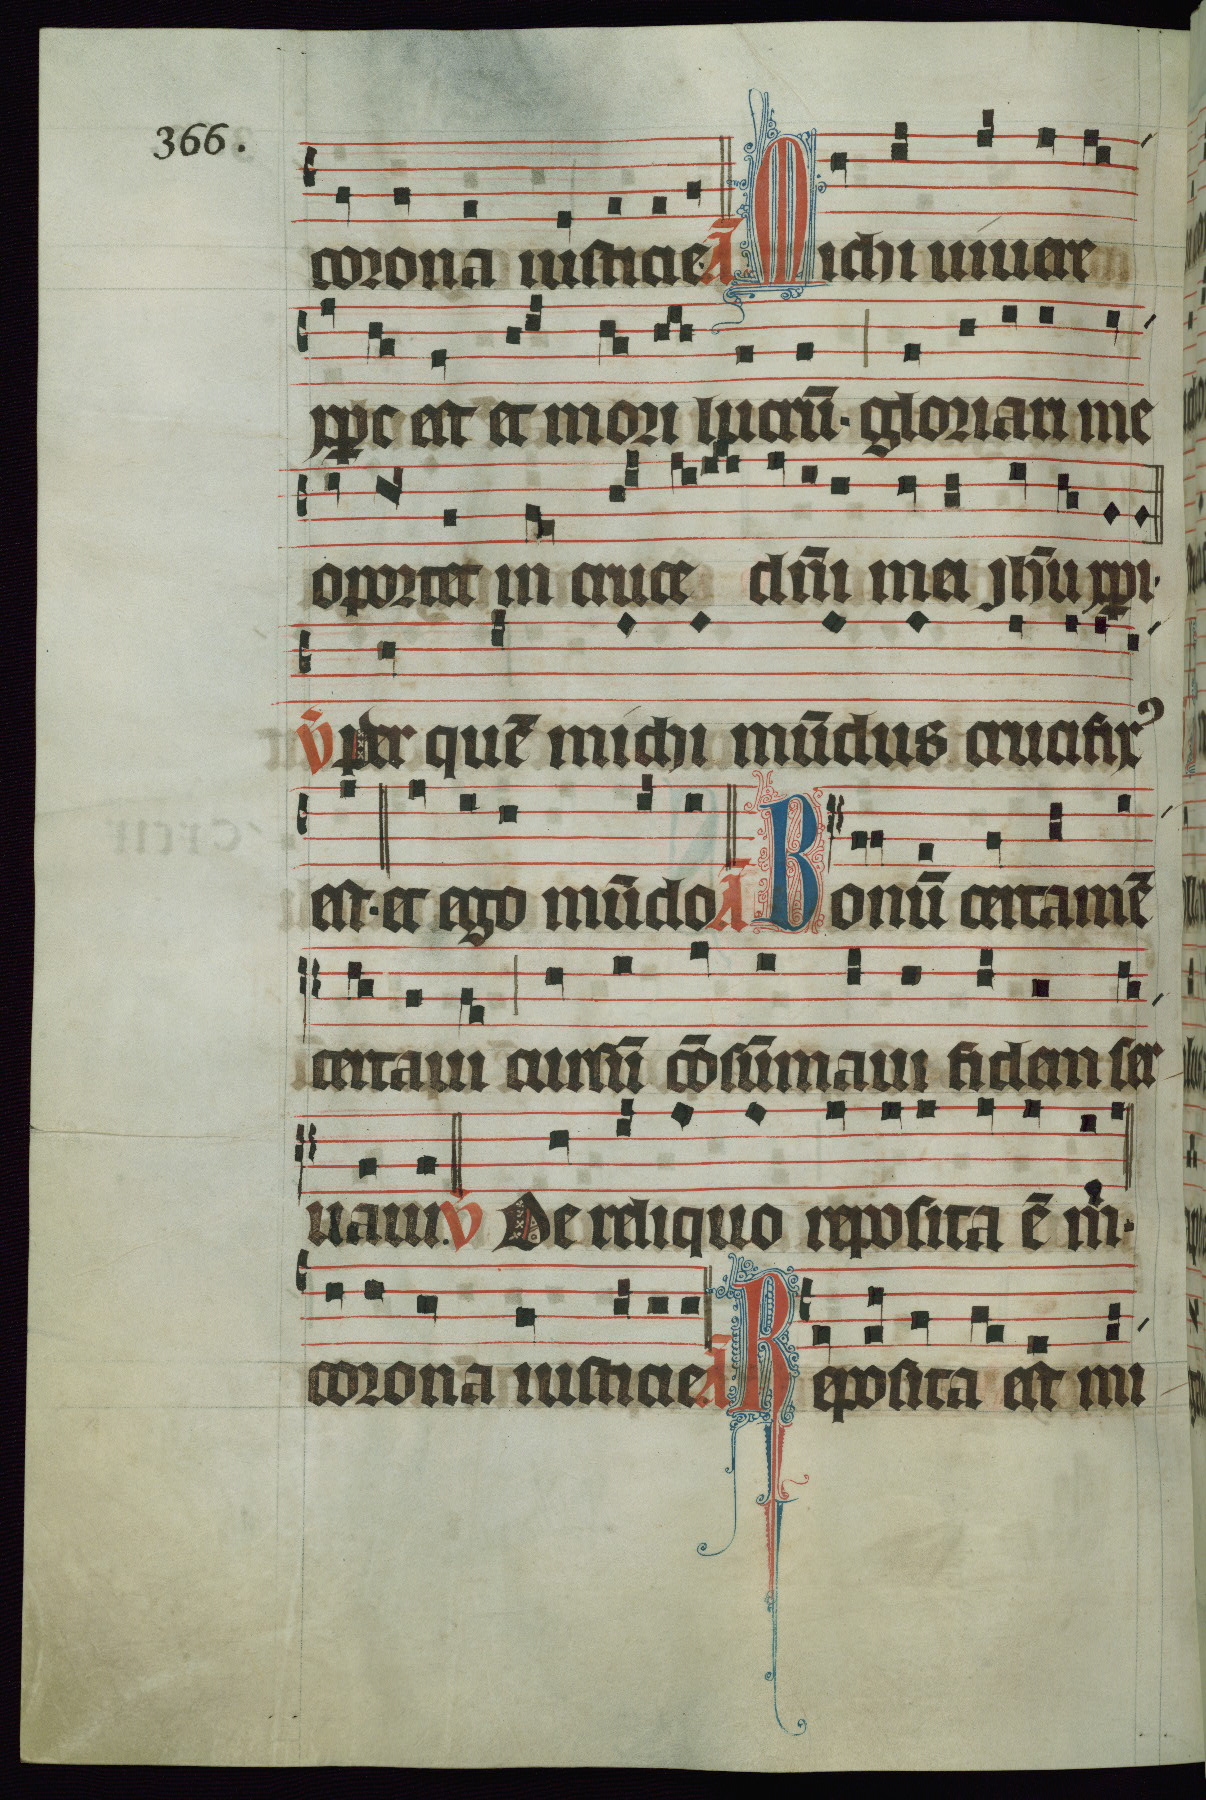 366.
corona iusticie. Ā Michi uiuere
xp̄c est et mori lucrū. gloriari me
oportet in cruce dn̄i mei jhū xpi.
v̄ per quē michi mūdus crucifixꝰ
est. et ego mūdo Ā Bonū certamē
certaui cursū cōsūmaui fidem ser
uaui. v̄ De reliquo reposita ē m̄.
corona iusticie Ā Reposita est mi